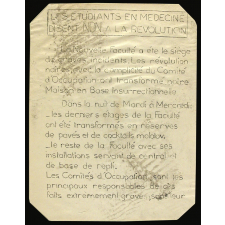 LES ETUDIANTS EN MEDECINE
DISENT NON A LA REVOLUTION
La Nouvelle Faculté a été le siège
de graves incidents. Les révolution
naires avec la complicité du Comité
d'Occupation ont transformé notre
Maison en Base Insurrectionnelle
Dans la nuit de Mardi à Mercredi
_les derniers étages de la faculté
ont été transformés en réserves
de pavés et de cocktails molotov
_le reste de la faculté avec ses
installations servant de centre et
de base de repli.
Les Comités d'Occupation sont les
principaux responsables de ces
faits extrêmement graves